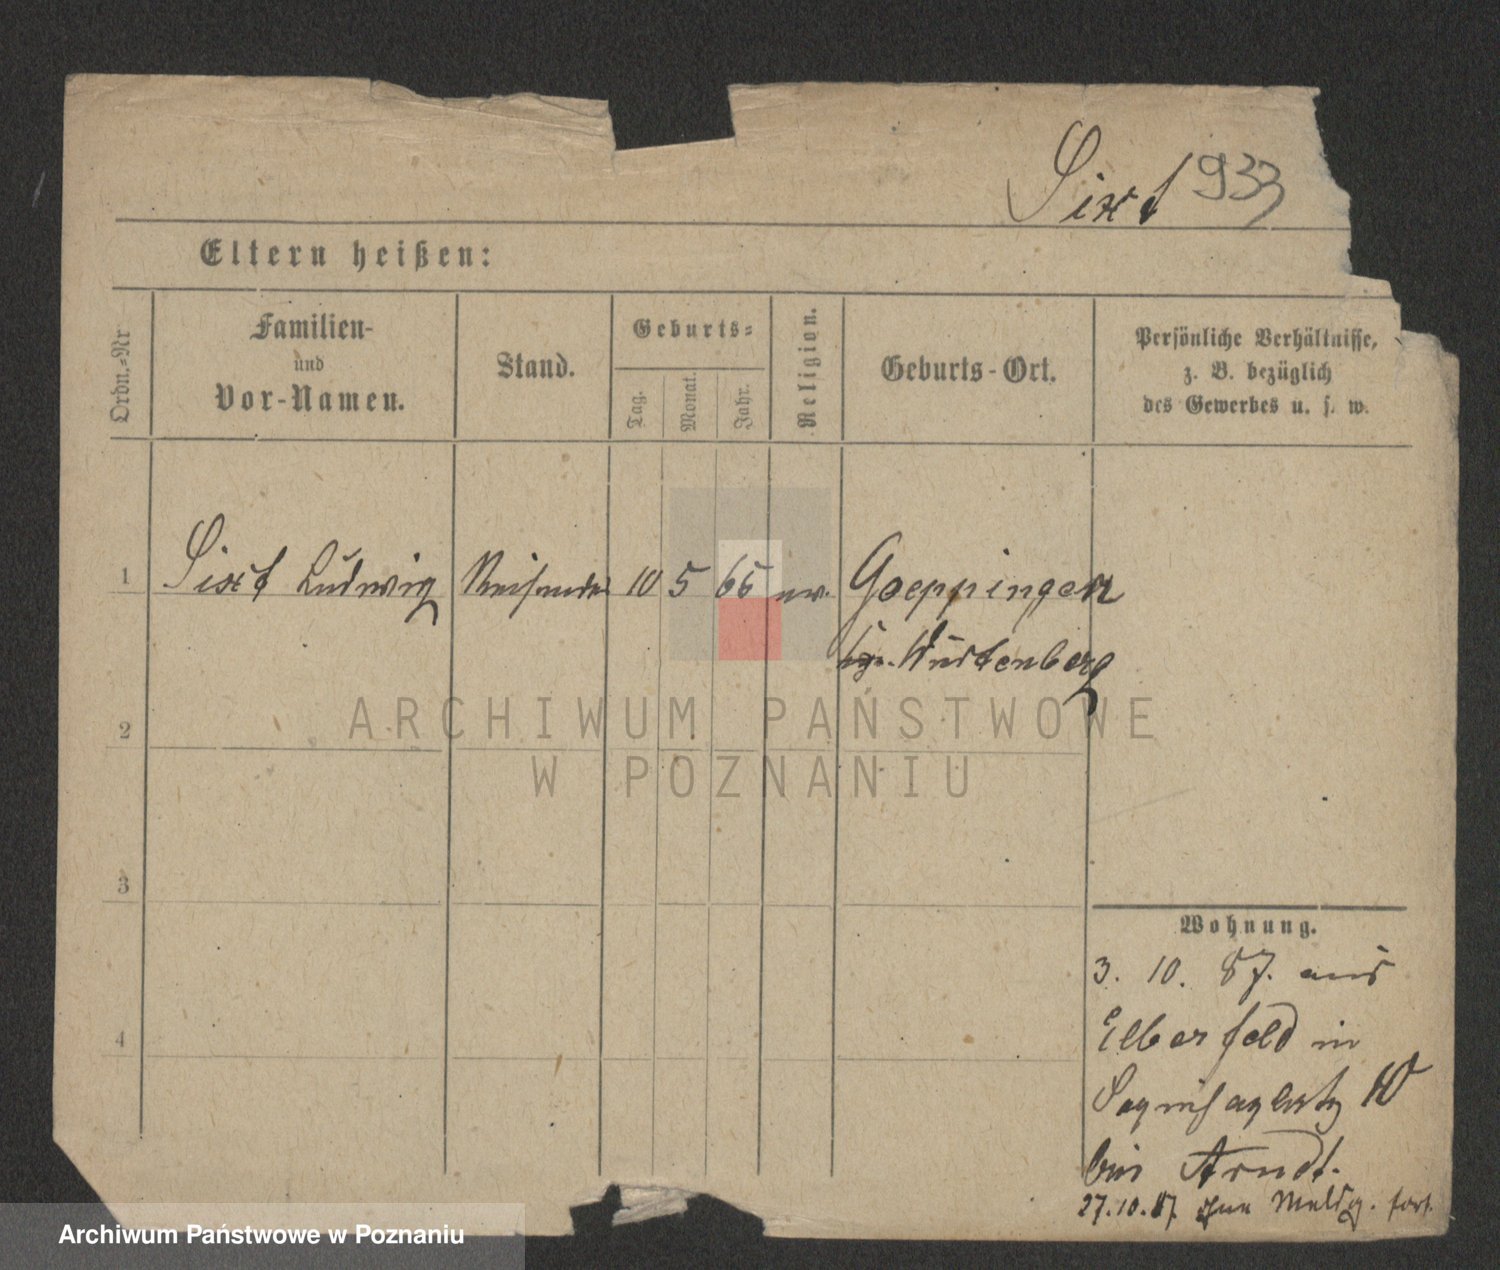 Sixt 933
Eltern heißen:
Ordn.-Nr
Familien-
und
Vor-Namen.
Stand.
Geburts-
Tag.
Monat.
Jahr.
Religion.
Geburts-Ort.
Persönliche Verhältnisse,
z. B. bezüglich
des Gewerbes u. s. w.
1 Sixt Ludwig Reisender 10 5 65 ev. Goeppingen
Württenberg
2
ARCHIWUM PAŃSTWOWE
W POZNANIU
3
Wohnung.
3. 10. 87. aus
Elberfeld in
4
Sapiehaplatz 10
bei Arndt.
27.10.87 Meldg. fort.
Archiwum Państwowe w Poznaniu